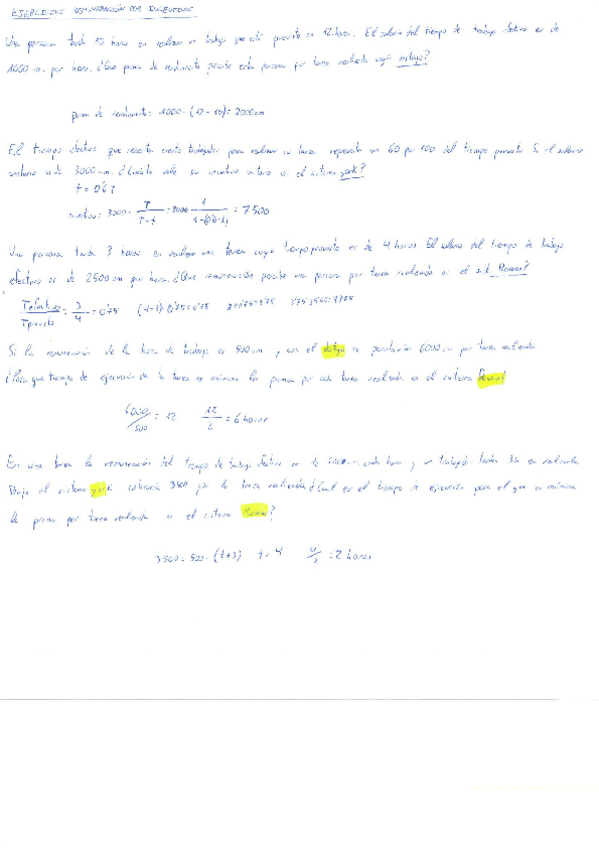 EJERCICIOS REMUNERACIÓN POR INCENTIVOS
Una persona tarda 10 horas en realizar un trabajo que está previsto en 12 horas. El salario del tiempo de trabajo efectivo es de
1000 um. por hora. ¿Que prima de rendimiento percibe esta persona por tarea realizada según ?
prima de rendimiento: 1000 · (12 - 10) = 2000 um
El tiempo efectivo que necesita cierto trabajador para realizar su tarea representa un 60 por 100 del tiempo previsto. Si el salario
unitario es de 3000 um. ¿Cuánto vale su en el sistema york?
t = 0'6T
3000 · T/(T-t) = 3000 · = 7500
Una persona tarda 3 horas en realizar una tarea cuyo tiempo previsto es de 4 horas. El salario del tiempo de trabajo
efectivo es de 2500 um por hora. ¿Que remuneración percibe una persona por tarea realizada en el sist. Rowan?
T efectivo / T previsto = 3/4 = 0'75
Si la remuneración de la hora de trabajo es 500 um y con el se garantizan 6000 um por tarea realizada
¿Para que tiempo de ejecución de la tarea es máxima la prima por cada tarea realizada en el sistema
6000/500 = 12 12/2 = 6 horas
En una tarea la remuneración del tiempo de trabajo efectivo es de um. cada hora y un trabajador tarda 3h en realizarla
Bajo el sistema york cobraría 3500 por la tarea realizada ¿Cual es el tiempo de ejecución para el que es máxima
la prima por tarea realizada en el sistema Rowan?
3500 = 500 · (t+3) t = 4 4/2 = 2 horas